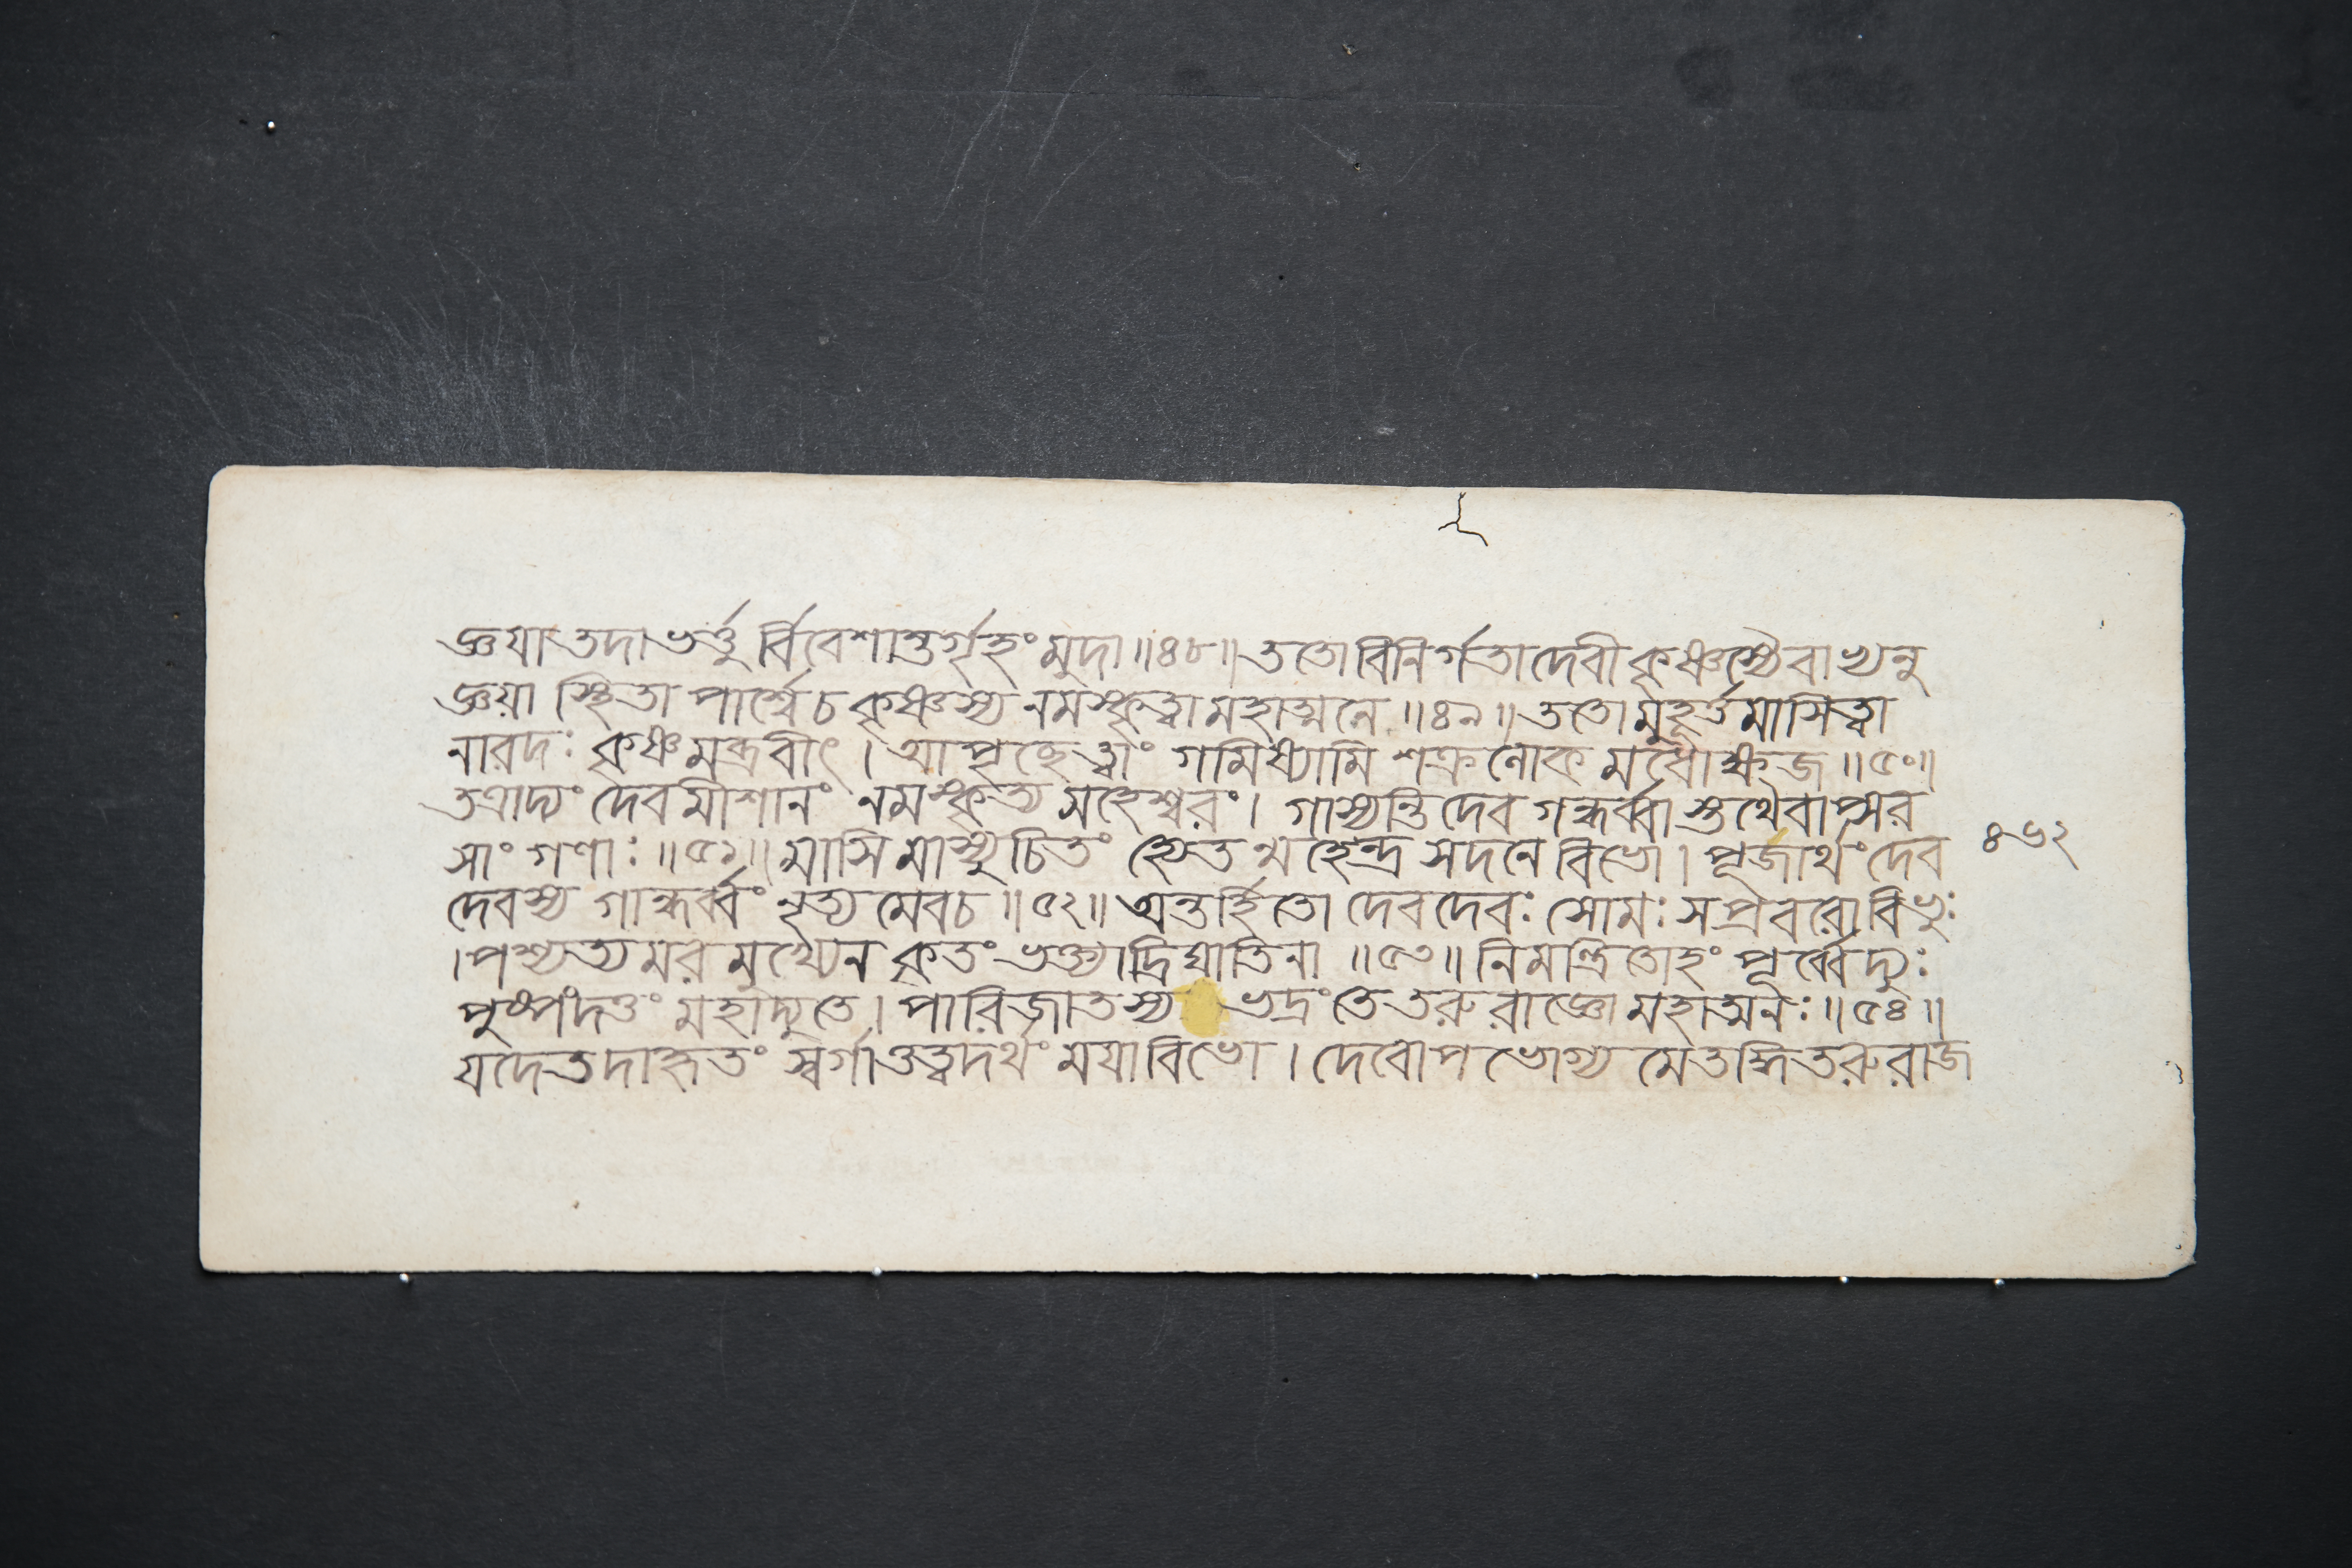 জ্ঞয়া তদা ভর্ত্তুর্বিবেশান্তর্গৃহং মুদা ॥ ৪৮ ॥ ততো বিনির্গতা দেবী কৃষ্ণস্যৈবাভ্যনু
জ্ঞয়া স্থিতা পার্শ্বে চ কৃষ্ণস্য নমস্কৃত্বা মহাত্মনে ॥ ৪৯ ॥ ততো মুহূর্ত্তমাসিত্বা
নারদঃ কৃষ্ণমব্রবীৎ । আপৃচ্ছে ত্বাং গমিষ্যামি শক্রলোকমধোক্ষজ ॥ ৫০ ॥
তত্রাদ্যং দেবমীশানং নমস্কৃত্য মহেশ্বরং । গাস্যন্তি দেবগন্ধর্ব্বাস্তথৈবাপ্সর
সাং গণাঃ ॥ ৫১ ॥ মাসি মাস্যুচিতং হ্যেতন্মহেন্দ্রসদনে বিভো । পূজার্থং দেব
৪৬২
দেবস্য গান্ধর্ব্বং নৃত্যমেব চ ॥ ৫২ ॥ অন্তর্হিতো দেবদেবঃ সোমঃ সপ্রবরো বিভুঃ
। পশ্যত্যমরমুখ্যেন কৃতং ভক্ত্যাদ্রিঘাতিনা ॥ ৫৩ ॥ নিমন্ত্রিতোহং পূর্ব্বেদ্যুঃ
পুষ্পং দত্তং মহাদ্যুতে । পারিজাতস্য ভদ্রং তে তরুরাজ্ঞো মহাত্মনঃ ॥ ৫৪ ॥
যদেতদাহৃতং স্বর্গাত্তত্বদর্থং ময়া বিভো । দেবোপভোগ্যমেতদ্ধি তরুরাজ